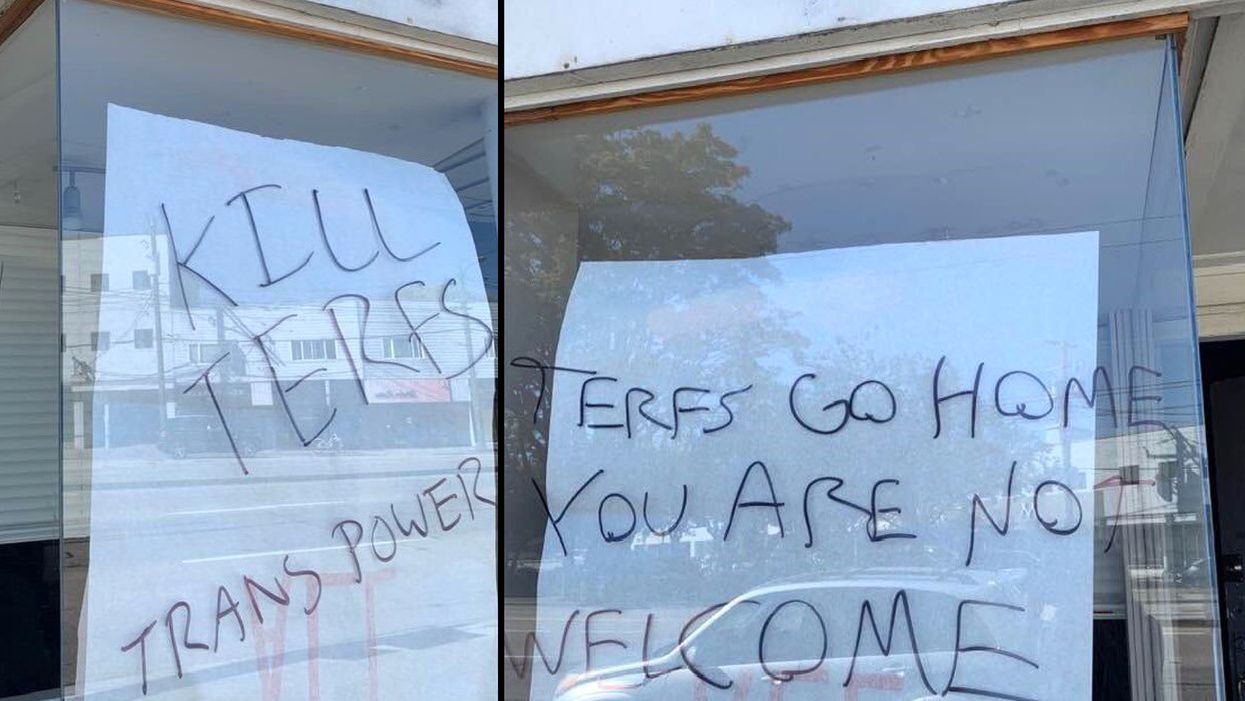 KILL
TERFS
TRANS POWER
TERFS GO HOME
YOU ARE NOT
WELCOME